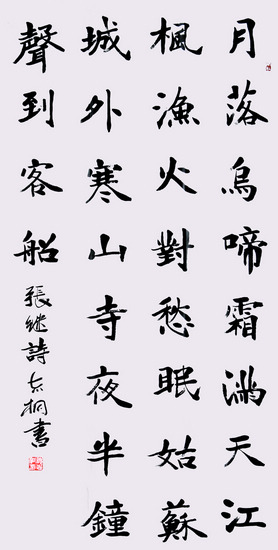 月落烏啼霜滿天江
楓漁火對愁眠姑蘇
城外寒山寺夜半鐘
聲到客船
張継詩志桐書